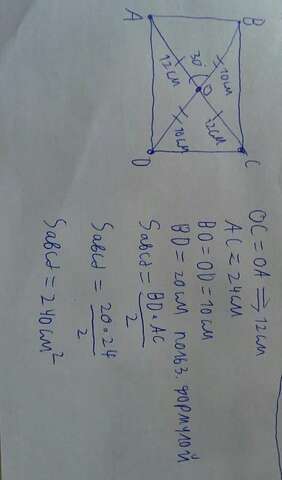 B
C
10см
12см
30°
O
12см
10см
A
D
OC = OA ⇒ 12см
AC = 24см
BO = OD = 10см
BD = 20см польз. формулой
Sabcd = BD · AC
2
Sabcd = 20 · 24
2
Sabcd = 240см²